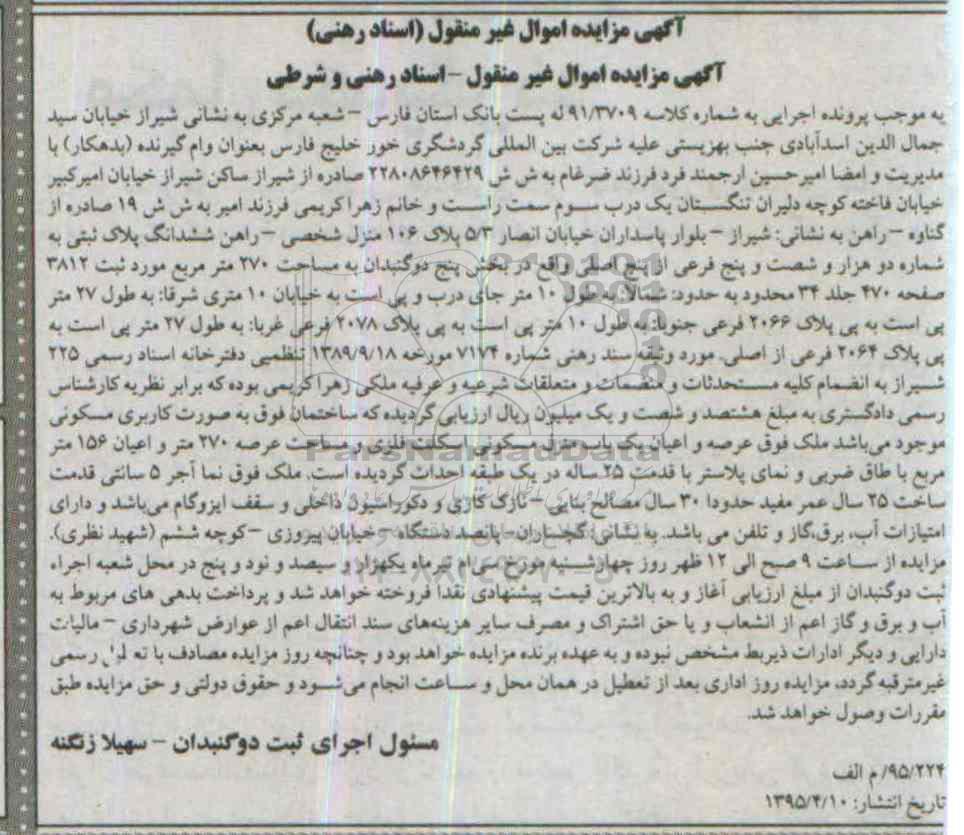 آگهی مزایده اموال غیر منقول (اسناد رهنی)
آگهی مزایده اموال غیر منقول -اسناد رهنی و شرطی
به موجب پرونده اجرایی به شماره کلاسه ۹۱/۳۷۰۹ له پست بانک استان فارس – شعبه مرکزی به نشانی شیراز خیابان سید
جمال الدین اسدآبادی جنب بهزیستی علیه شرکت بین المللی گردشگری خور خلیج فارس بعنوان وام گیرنده (بدهکار) با
مدیریت و امضا امیرحسین ارجمند فرد فرزند ضرغام به ش ش ۲۲۸۰۸۶۴۶۴۲۹ صادره از شیراز ساکن شیراز خیابان امیرکبیر
خیابان فاخته کوچه دلیران تنگستان یک درب سوم سمت راست و خانم زهرا کریمی فرزند امیر به ش ش ۱۹ صادره از
گناوه – راهن به نشانی: شیراز – بلوار پاسداران خیابان انصار ۵/۳ پلاک ۱۰۶ منزل شخصی – راهن ششدانگ پلاک ثبتی به
شماره دو هزار و شصت و پنج فرعی از پنج اصلی واقع در بخش پنج دوگنبدان به مساحت ۲۷۰ متر مربع مورد ثبت ۳۸۱۲
صفحه ۴۷۰ جلد ۳۴ محدود به حدود: شمالا: به طول ۱۰ متر جای درب و پی است به خیابان ۱۰ متری شرقا: به طول ۲۷ متر
پی است به پی پلاک ۲۰۶۶ فرعی جنوبا: به طول ۱۰ متر پی است به پی پلاک ۲۰۷۸ فرعی غربا: به طول ۲۷ متر پی است به
پی پلاک ۲۰۶۴ فرعی از اصلی. مورد وثیقه سند رهنی شماره ۷۱۷۴ مورخه ۱۳۸۹/۹/۱۸ تنظیمی دفترخانه اسناد رسمی ۲۲۵
شیراز به انضمام کلیه مستحدثات و منضمات و متعلقات شرعیه و عرفیه ملکی زهرا کریمی بوده که برابر نظریه کارشناس
رسمی دادگستری به مبلغ هشتصد و شصت و یک میلیون ریال ارزیابی گردیده که ساختمان فوق به صورت کاربری مسکونی
موجود می‌باشد ملک فوق عرصه و اعیان یک باب منزل مسکونی اسکلت فلزی و مساحت عرصه ۲۷۰ متر و اعیان ۱۵۶ متر
مربع با طاق ضربی و نمای پلاستر با قدمت ۲۵ ساله در یک طبقه احداث گردیده است. ملک فوق نما آجر ۵ سانتی قدمت
ساخت ۲۵ سال عمر مفید حدودا ۳۰ سال مصالح بنایی – نازک کاری و دکوراسیون داخلی و سقف ایزوگام می‌باشد و دارای
امتیازات آب، برق،گاز و تلفن می باشد. به نشانی: گچساران- پانصد دستگاه – خیابان پیروزی – کوچه ششم (شهید نظری).
مزایده از ساعت ۹ صبح الی ۱۲ ظهر روز چهارشنبه مورخ سی‌ام تیرماه یکهزار و سیصد و نود و پنج در محل شعبه اجراء
ثبت دوگنبدان از مبلغ ارزیابی آغاز و به بالاترین قیمت پیشنهادی نقدا فروخته خواهد شد و پرداخت بدهی های مربوط به
آب و برق و گاز اعم از انشعاب و یا حق اشتراک و مصرف سایر هزینه‌های سند انتقال اعم از عوارض شهرداری – مالیات
دارایی و دیگر ادارات ذیربط مشخص نبوده و به عهده برنده مزایده خواهد بود و چنانچه روز مزایده مصادف با تعطیل رسمی
غیرمترقبه گردد، مزایده روز اداری بعد از تعطیل در همان محل و ساعت انجام می‌شود و حقوق دولتی و حق مزایده طبق
مقررات وصول خواهد شد.
مسئول اجرای ثبت دوگنبدان – سهیلا زنگنه
۹۵/۲۲۴/ م الف
تاریخ انتشار: ۱۳۹۵/۴/۱۰
ParsNamadData